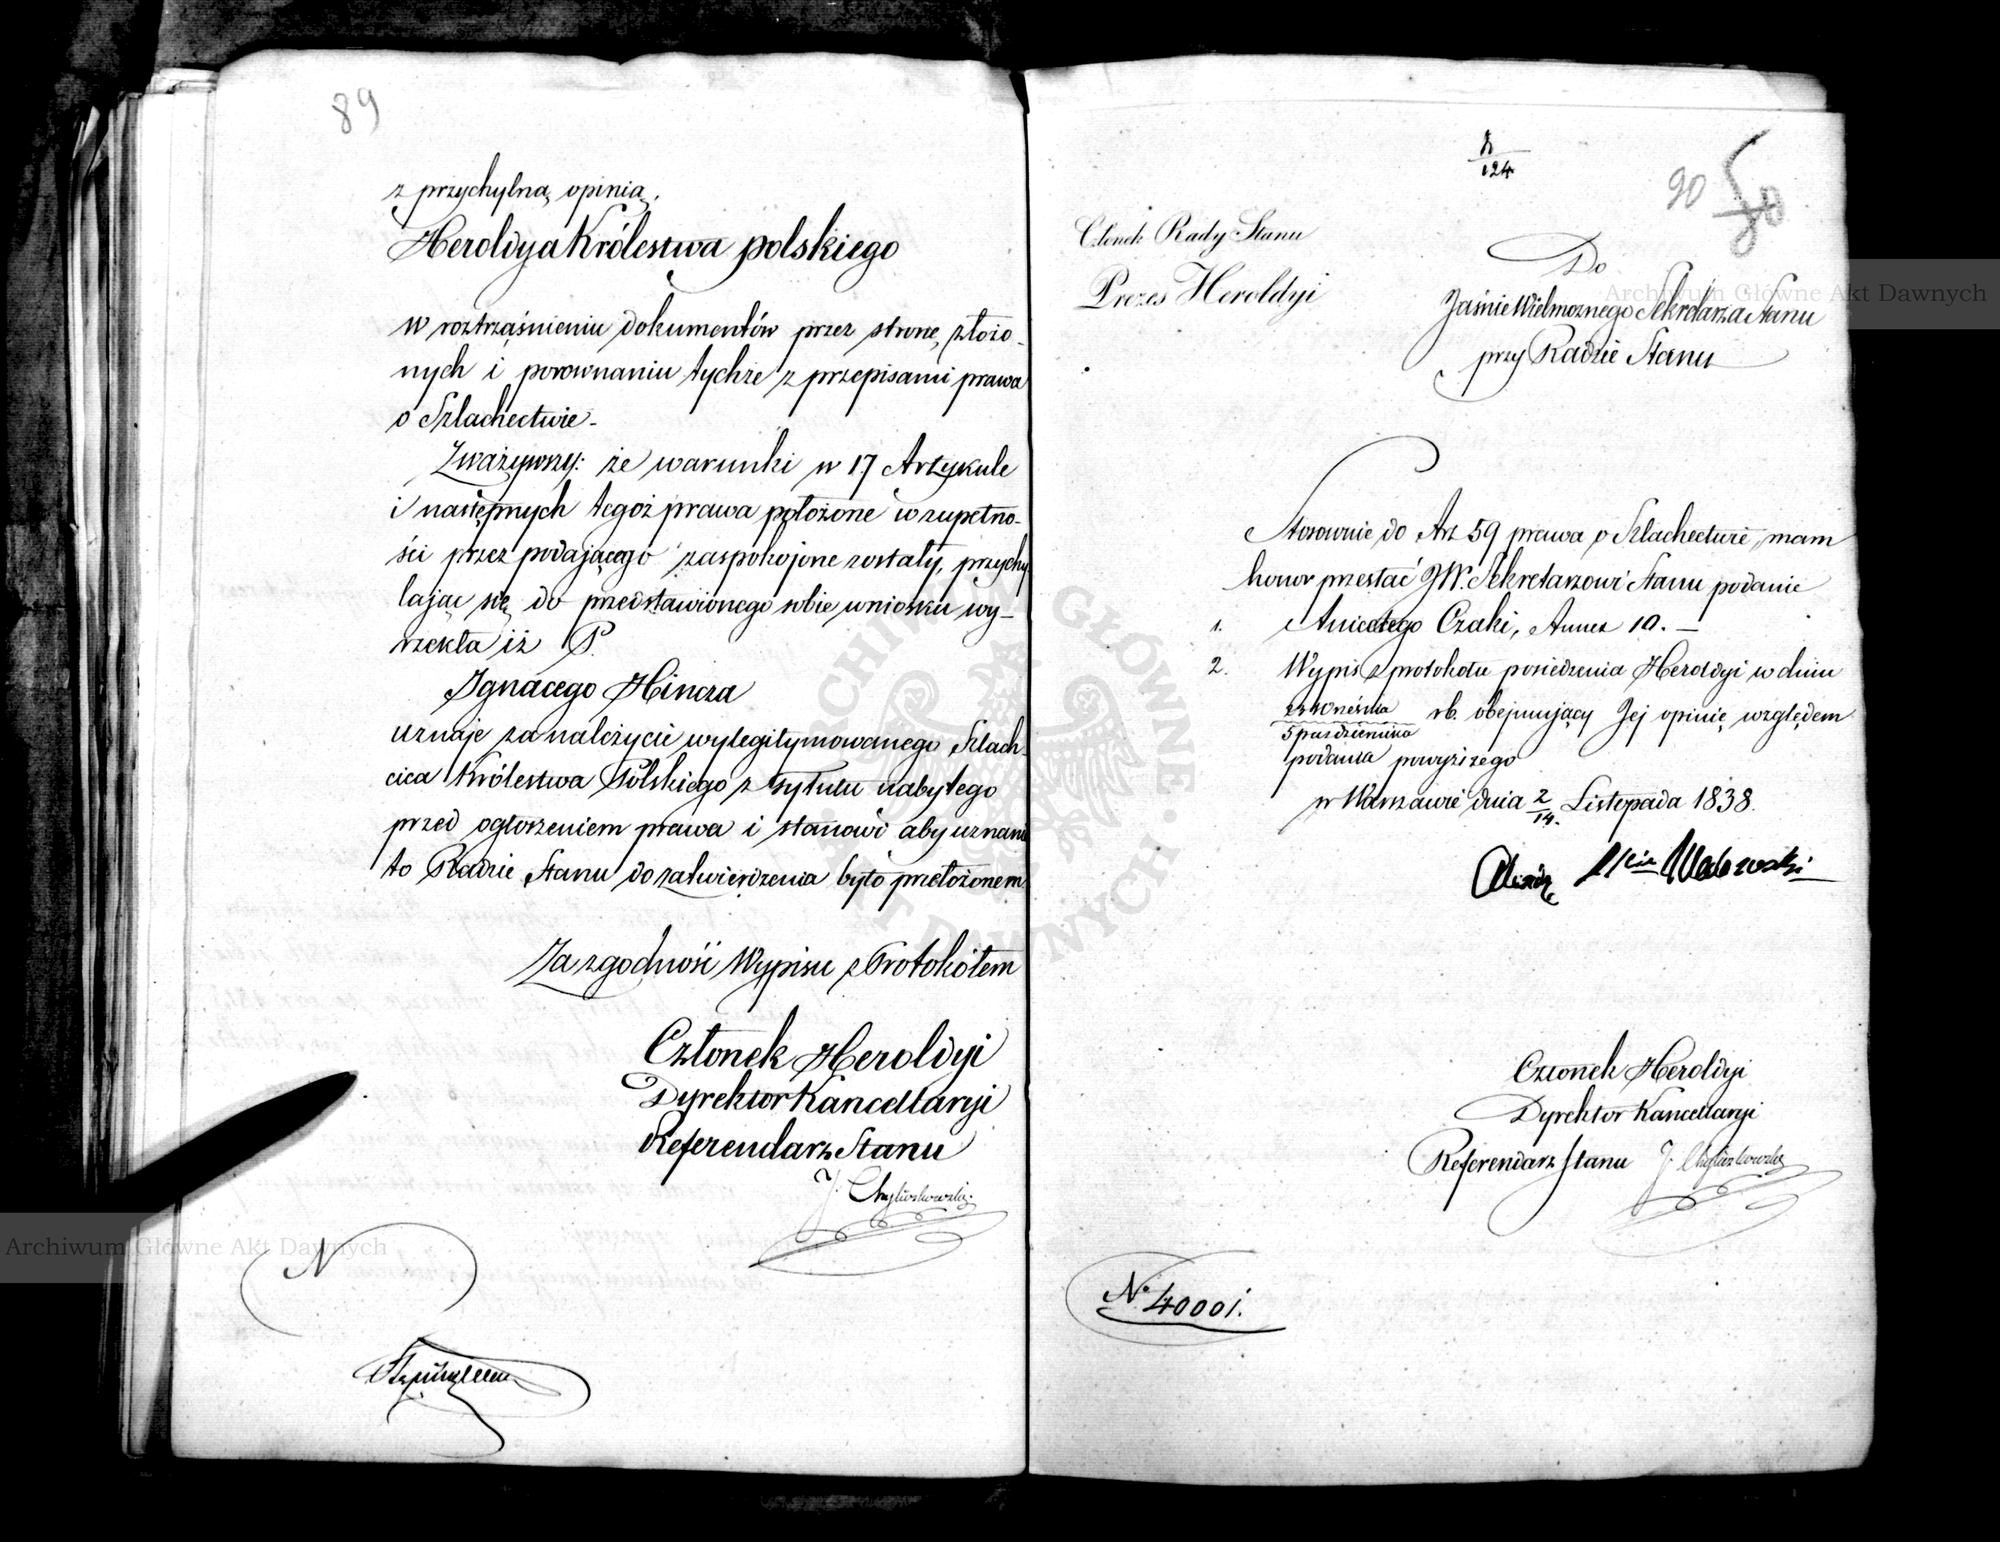 89
z przychylną opinią.
Heroldya Królestwa polskiego
w roztrząśnieniu dokumentów przez stronę złożo-
nych i porownaniu tychże z przepisami prawa
o Szlachectwie-
Zważywszy: że warunki w 17 Artykule
i następnych tegoż prawa położone w zupełno-
ści przez podającego zaspokojone zostały, przychy
lając się do przedstawionego sobie wniosku wy-
rzekła iż P.
Ignacego Hincza
uznaje za należycie wylegitymowanego Szlach-
cica Królestwa Polskiego z tytułu nabytego
przed ogłoszeniem prawa i stanowi aby uznanie
to Radzie Stanu do zatwierdzenia było przełożonem
Za zgodność Wypisu z Protokółem
Członek Heroldyi
Dyrektor Kancellaryi
Referendarz Stanu
J. Chyliczkowski
N
124
90
Członek Rady Stanu
Prezes Heroldyi
Do
Jaśnie Wielmożnego Sekretarza Stanu
przy Radzie Stanu
Stosownie do Art 59 prawa o Szlachectwie, mam
honor przesłać JW. Sekretarzowi Stanu podanie
1. Anicetego Czaki, Annex 10. —
2. Wypis z protokółu posiedzenia Heroldyi w dniu
września
5 października rb. obejmujący Jej opinię względem
podania powyższego
w Warszawie dnia 2/14. Listopada 1838.
Członek Heroldyi
Dyrektor Kancellaryi
Referendarz Stanu J. Chyliczkowski
No 40001.
Archiwum Główne Akt Dawnych
Archiwum Główne Akt Dawnych
ARCHIWUM GŁÓWNE AKT DAWNYCH